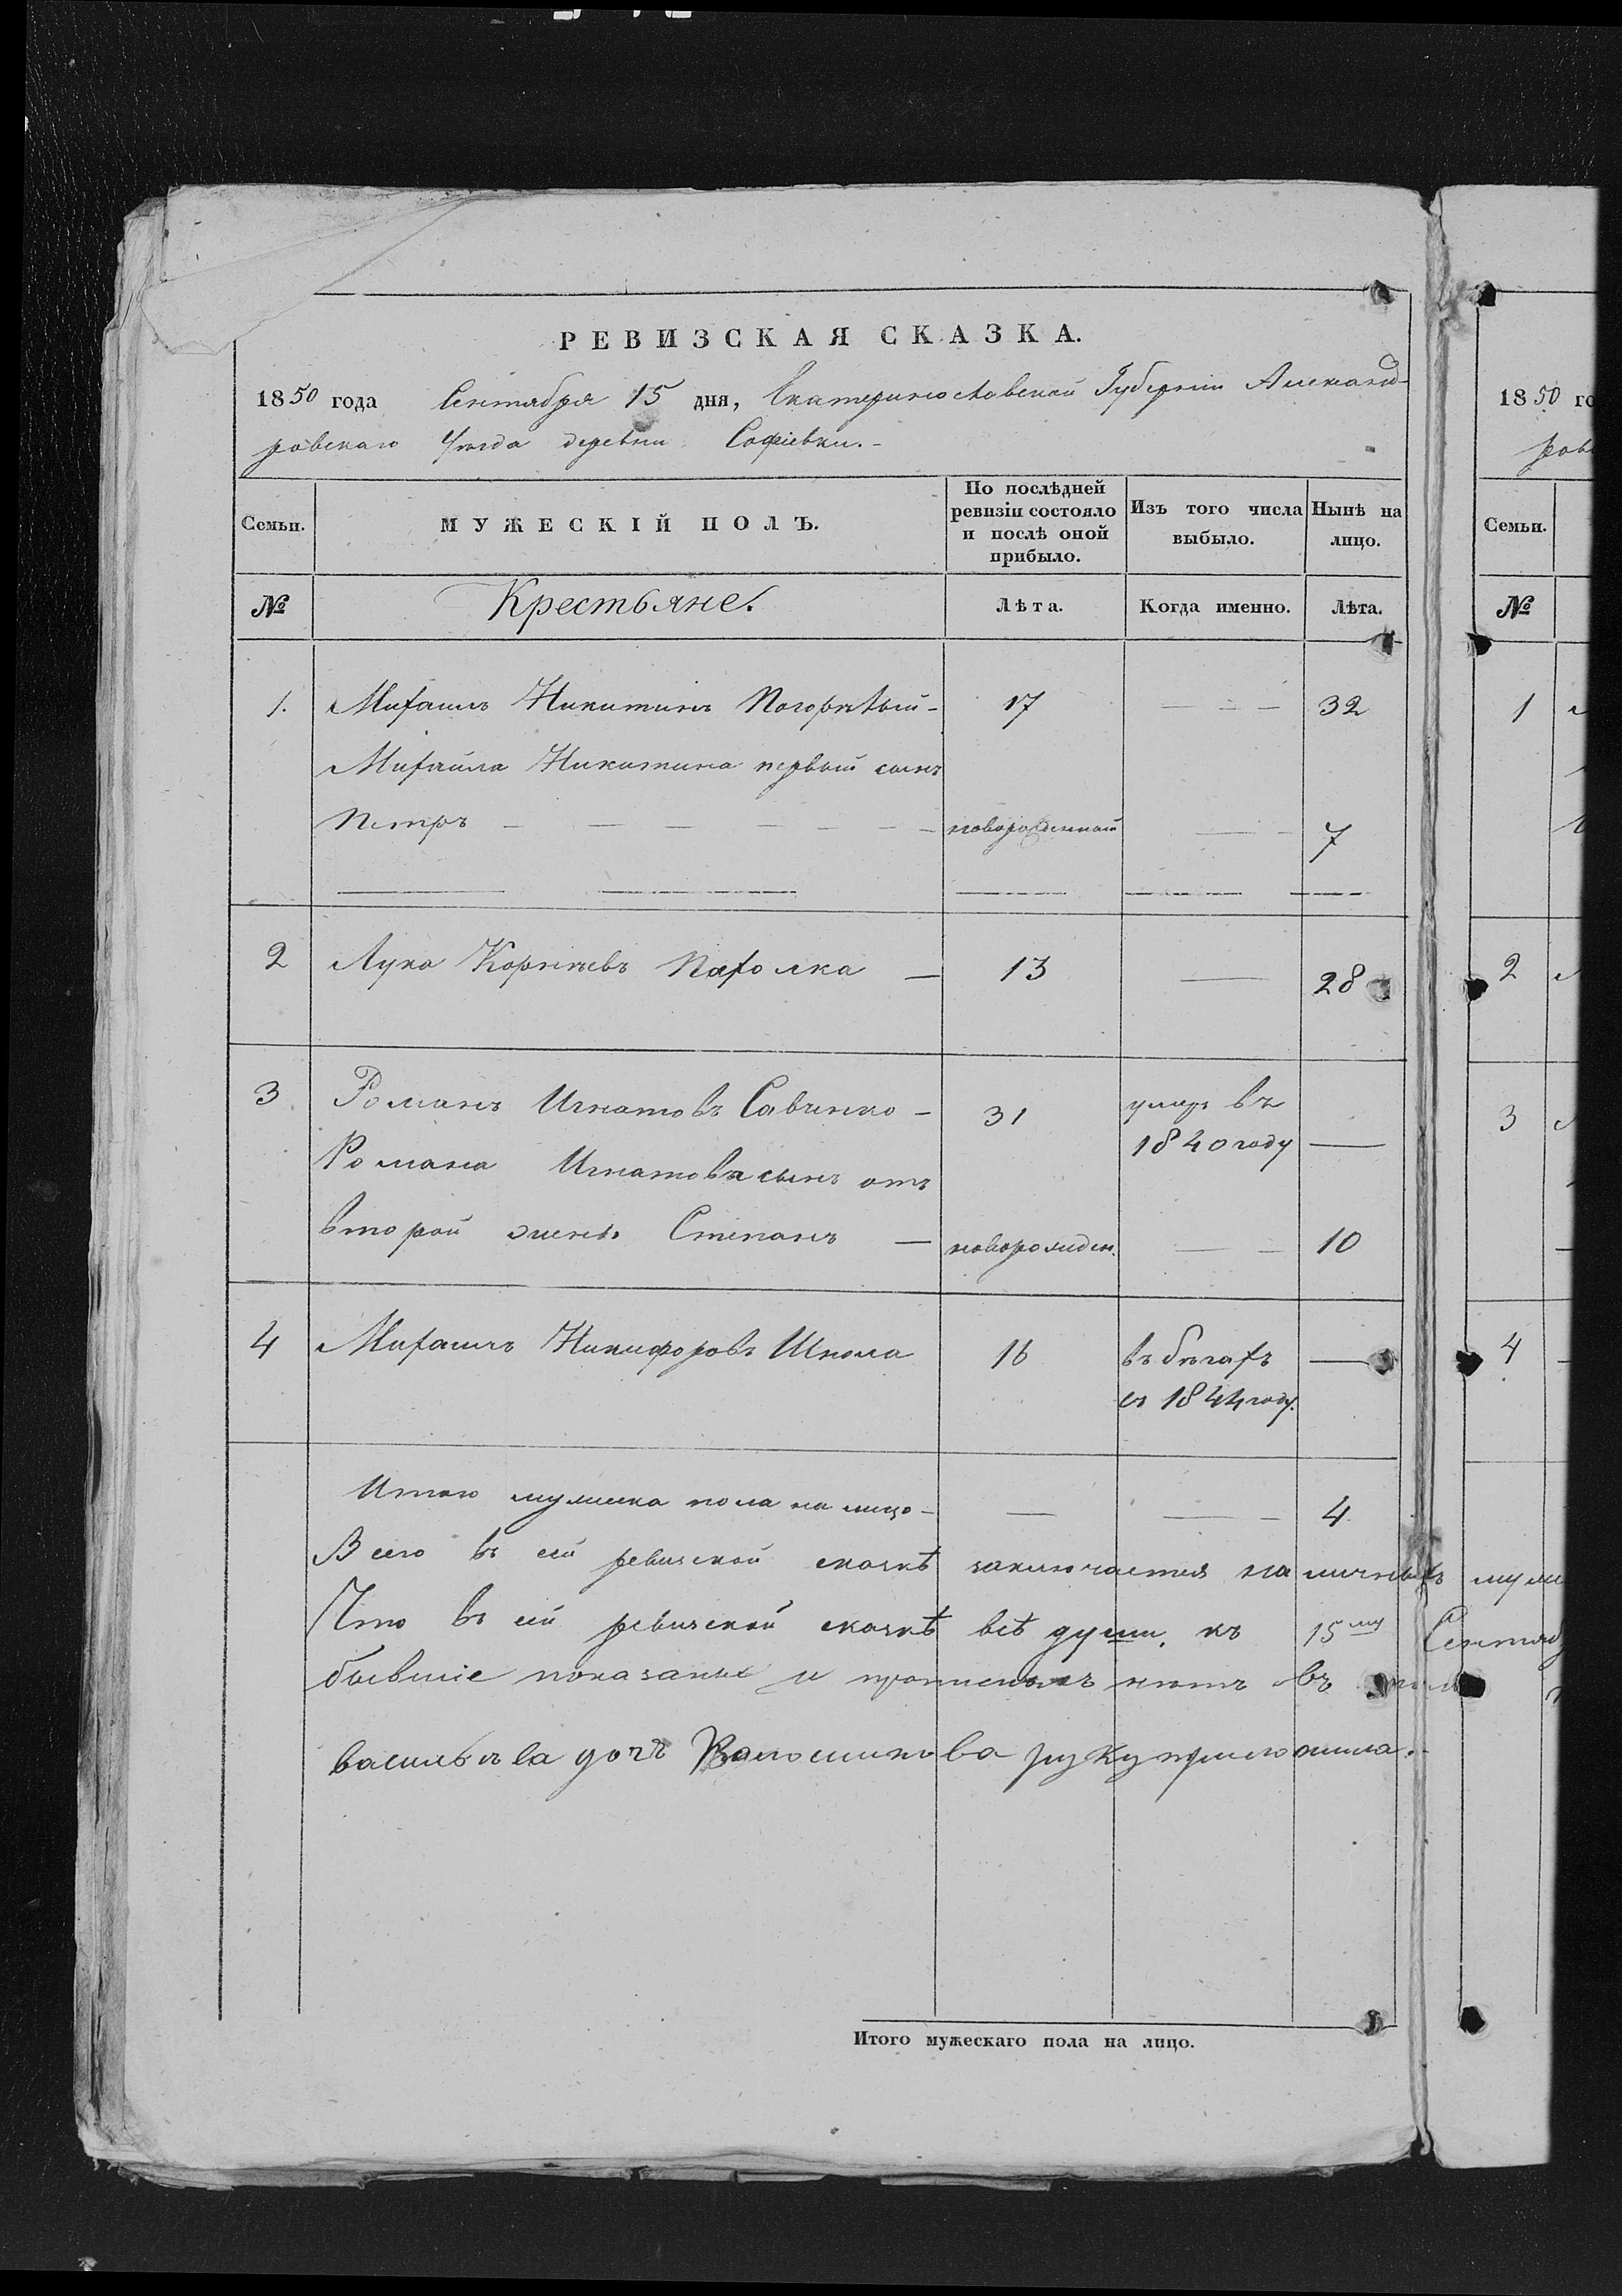 РЕВИЗСКАЯ СКАЗКА.
1850 года Сентября 15 дня, Екатеринославской Губернии Александ-
ровскаго Уѣзда деревни Софіевки.-
Семьи.
МУЖЕСКІЙ ПОЛЪ.
По послѣдней
ревизіи состояло
и послѣ оной
прибыло.
Изъ того числа
выбыло.
Нынѣ на
лицо.
№ Крестьяне. Лѣта. Когда именно. Лѣта.
1. Михаилъ Никитинъ Погорѣлый - 17 — 32
Михайла Никитина первый сынъ
Петръ — новорожденной — 7
2 Лука Корнѣевъ — 13 — 28
3 Романъ Игнатовъ Савченко - 31 умеръ въ
1840 году —
Романа Игнатова сынъ отъ
второй жены Степанъ — новорожден. — 10
4 Михаилъ Никифоровъ Школа 16 въ бѣгахъ —
съ 1844 году.
Итого мужеска пола на лицо - — — 4
Всего въ сей ревизской сказкѣ заключается наличныхъ муж
Что въ сей ревизской сказкѣ всѣ души, къ 15му Сентяб
бывшіе показаны и прописныхъ нѣтъ въ
васильева дочь Волошинова руку приложила.
Итого мужескаго пола на лицо.
1850 го
ров
Семьи.
№
1
2
3
4